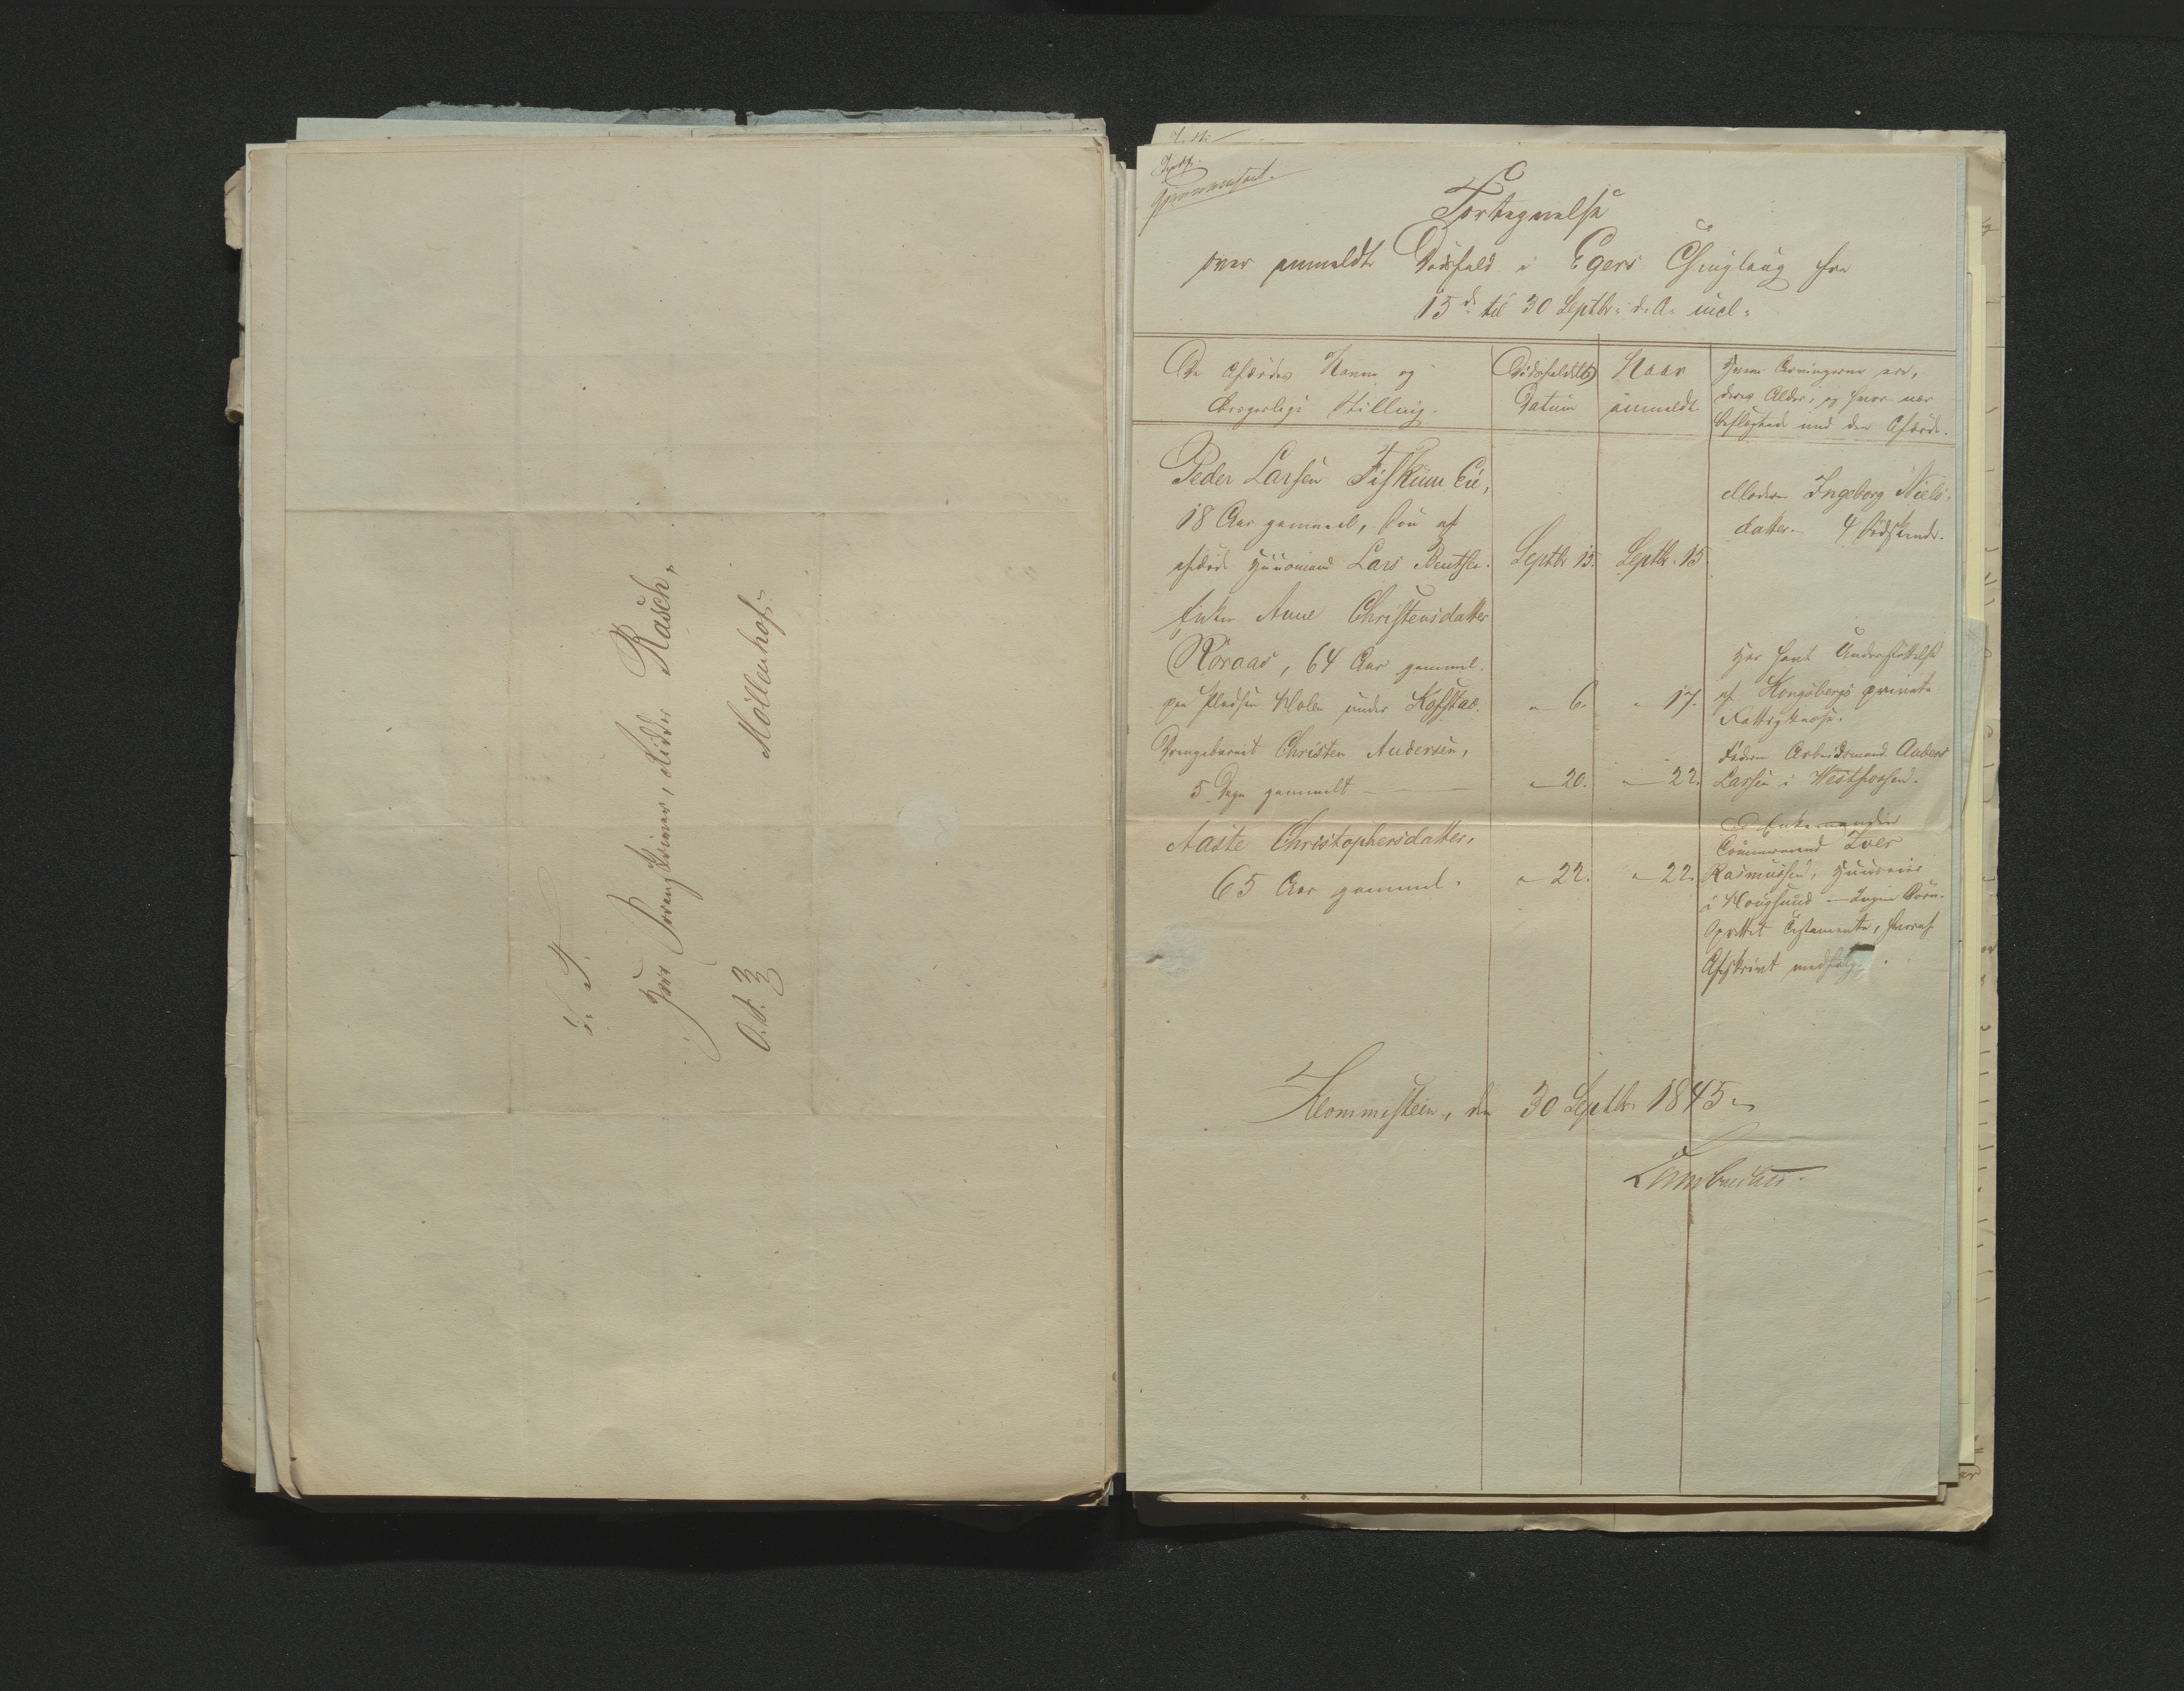 S. T.
Herr Sorenskriver, Ridder Rasch,
O. S. B.
Möllenhof.
Fortegnelse
over anmeldte Dödsfald i Egers Thinglaug fra
15de til 30 Septbr. d. A. incl.
De Afdödes Navne og
borgerlige Stilling.
Dödsfaldets
Datum
Naar
anmeldt
Hvem Arvingerne ere,
deres Alder, og hvor nær
beslægtede med den Afdöde.
Peder Larsen Fiskum Eie,
18 Aar gammel, Sön af
afdöde Huusmand Lars Bentsen.
Septbr 15.
Septbr. 15
Moderen Ingeborg Niels-
datter. 4 Södskende.
Enken Anne Christensdatter
Roraas, 64 Aar gammel.
paa Pladsen Molen under Kofstad.
" 6.
" 17.
Har havt Understöttelse
af Kongsbergs private
Fattigkasse.
Drengebarnet Christen Andersen,
5 Dage gammelt
" 20.
" 22.
Faderen Arbeidsmand Anders
Larsen i Westfossen.
Aaste Christophersdatter,
65 Aar gammel.
" 22.
" 22.
Enkemanden
Tömmermand Iver
Rasmussen, Huuseier
i Hougsund – Ingen Börn.
Oprettet Testamente, hvoraf
Afskrivt medfölger.
Klommestein, den 30 Septbr. 1845.